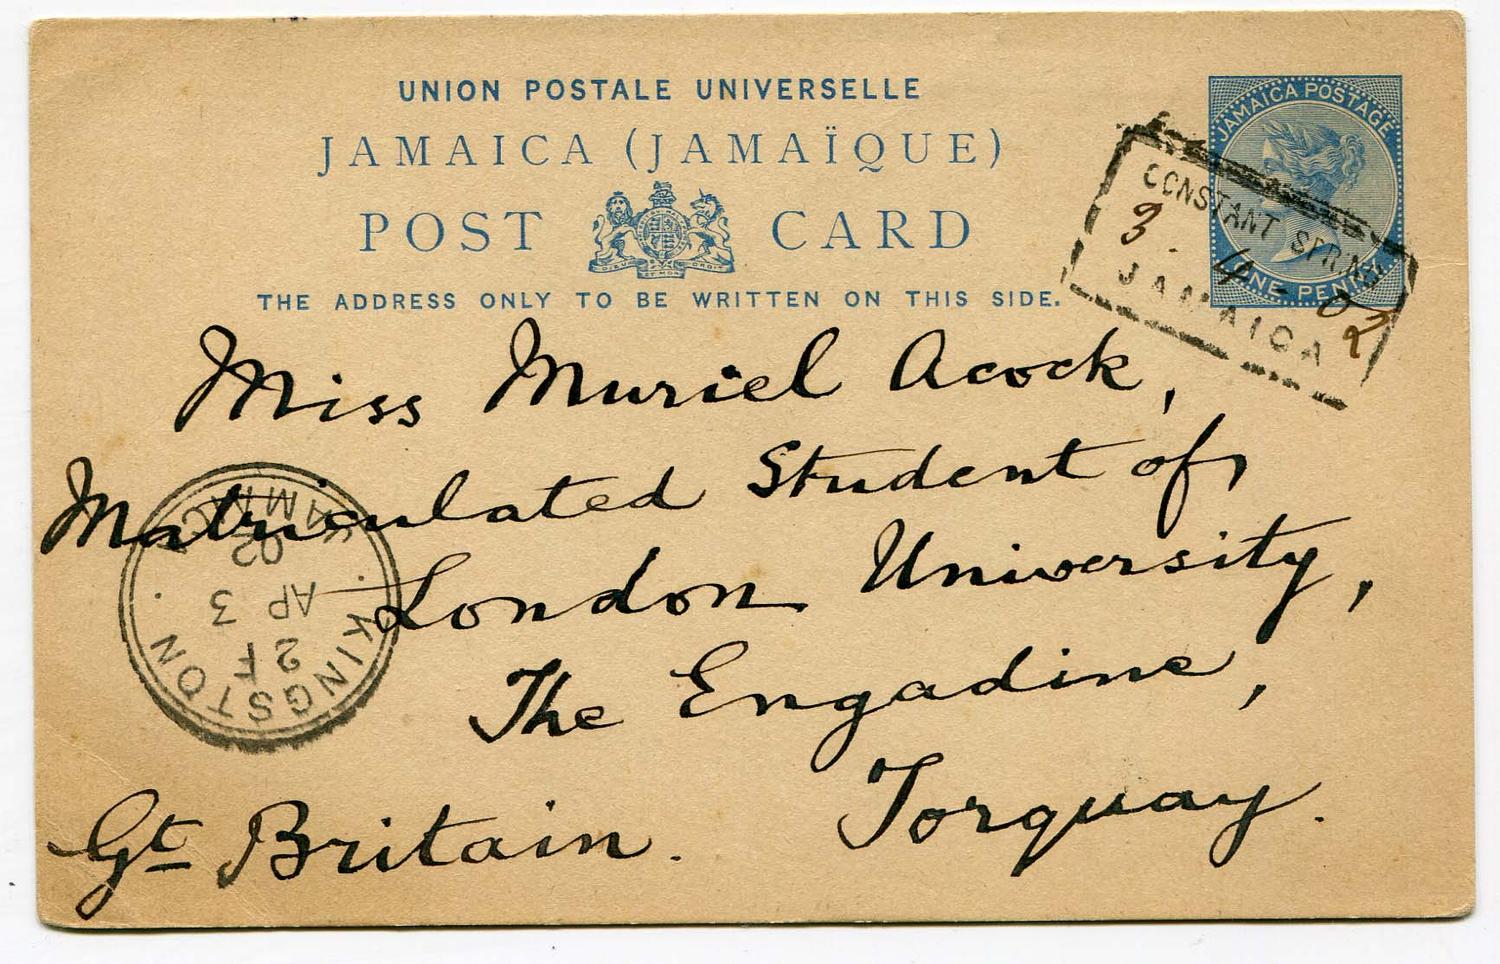 UNION POSTALE UNIVERSELLE
JAMAICA (JAMAÏQUE)
POST CARD
THE ADDRESS ONLY TO BE WRITTEN ON THIS SIDE.
JAMAICA POSTAGE
ONE PENNY
CONSTANT SPRING
3 . 4 - 02
JAMAICA
Miss Muriel Acock,
Matriculated Student of
London University,
The Engadine,
Torquay.
Gt Britain.
KINGSTON
2 F
AP 3
02
JAMAICA